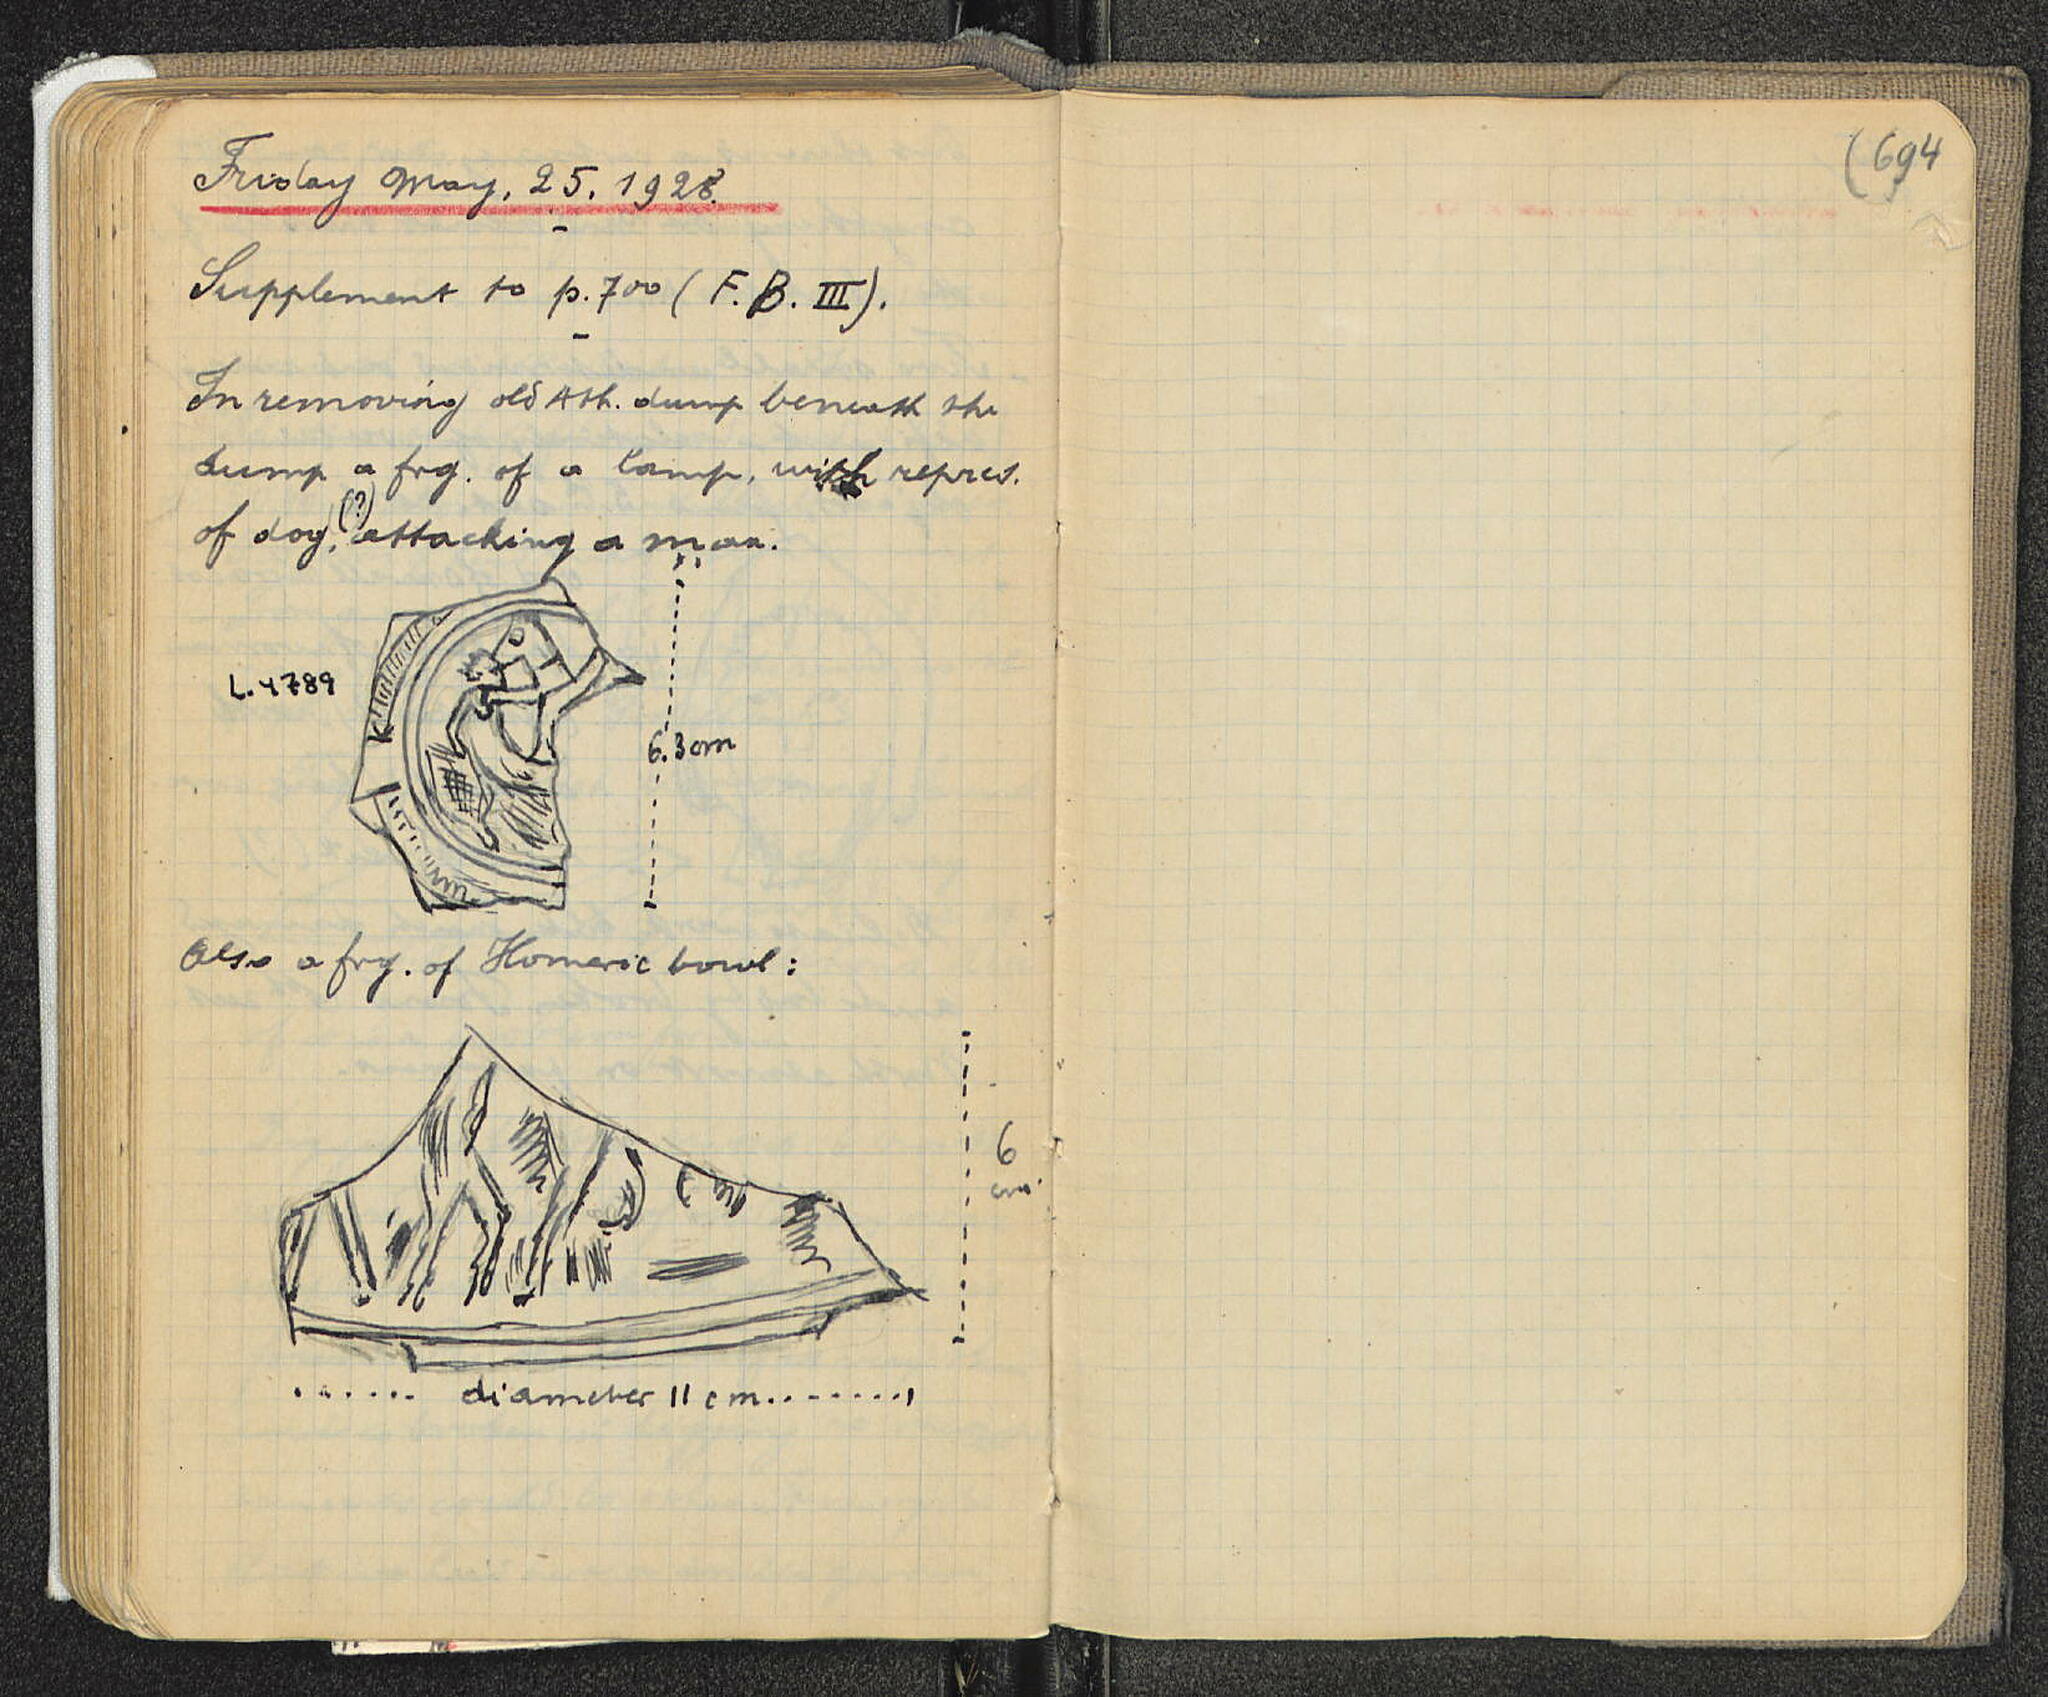 Friday May, 25, 1928.
Supplement to p. 700 (F. B. III).
In removing old Ath. dump beneath the
dump a frg. of a lamp, with repres.
of dog, (?) attacking a man.
L. 4789
6.3 cm
Also a frg. of Homeric bowl:
6
cm.
...... diameter 11 cm........
(694